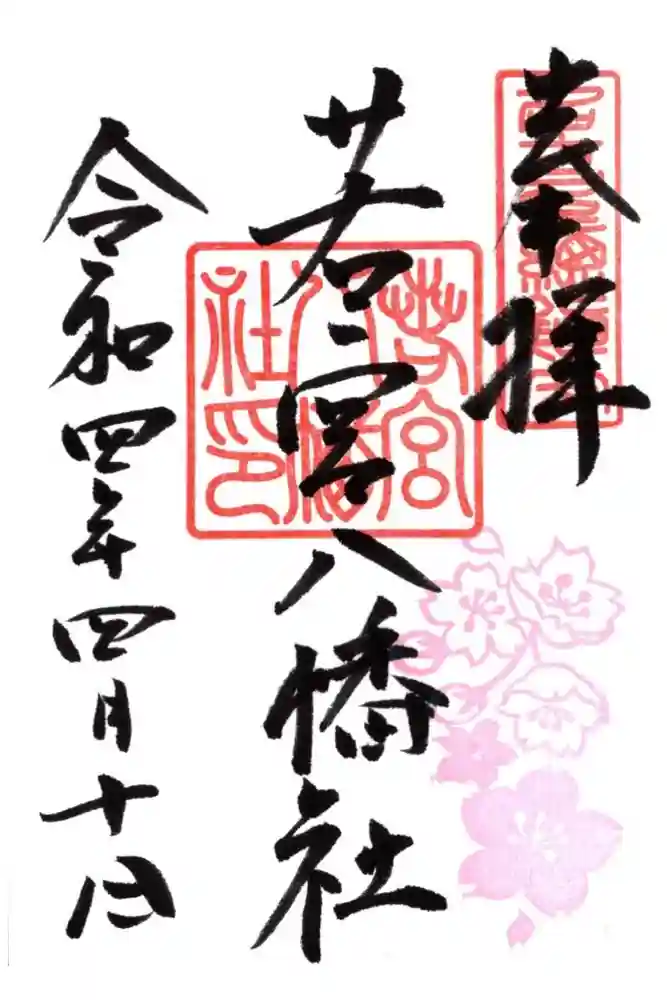 奉拝
若宮八幡社
若宮八幡社印
令和四年四月十日